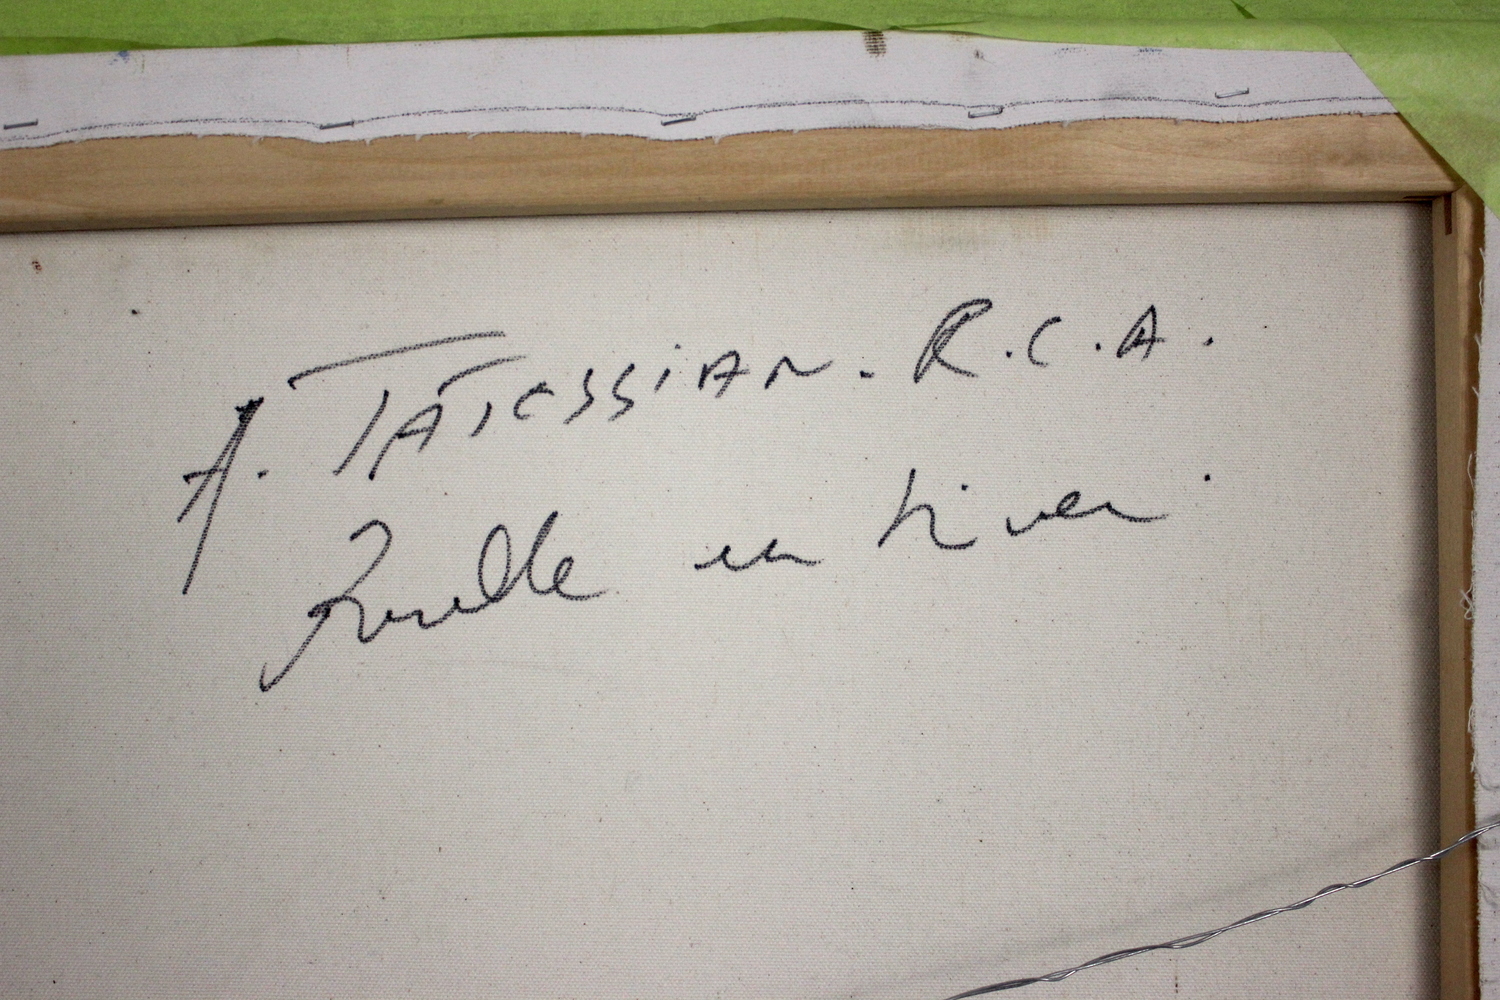 A. TATOSSIAN. R.C.A.
Ruelle en hiver.